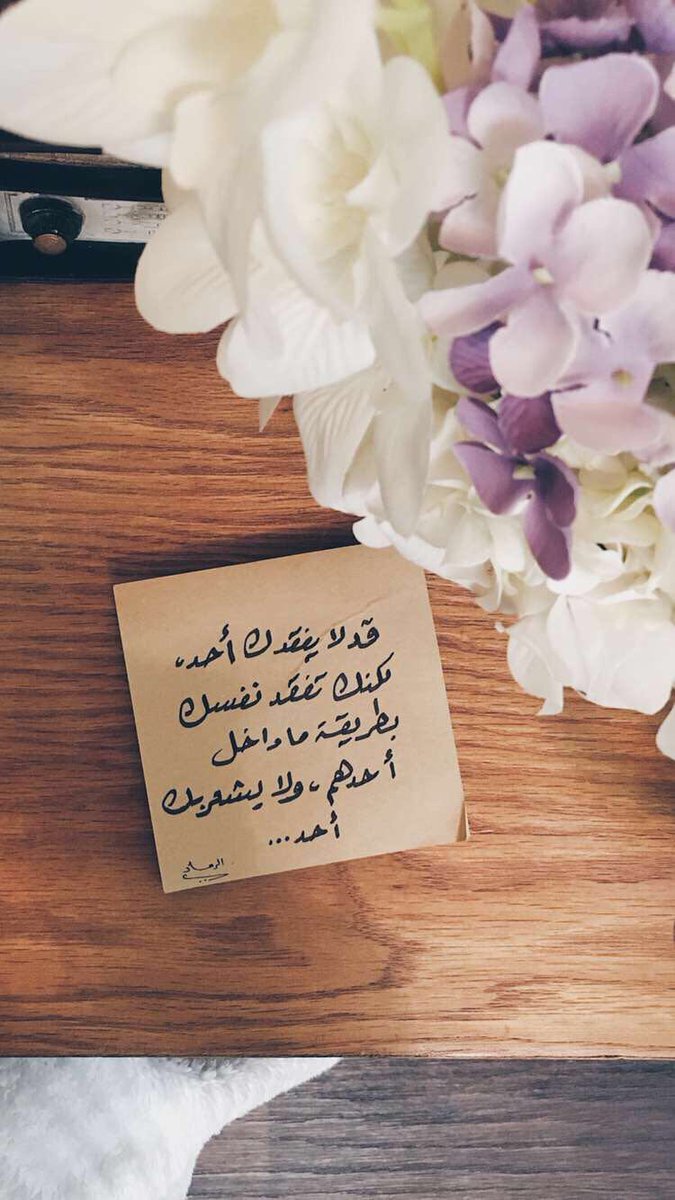 قد لا يفقدك أحد،
لكنك تفقد نفسك
بطريقة ما داخل
أحدهم، ولا يشعر بك
أحد...